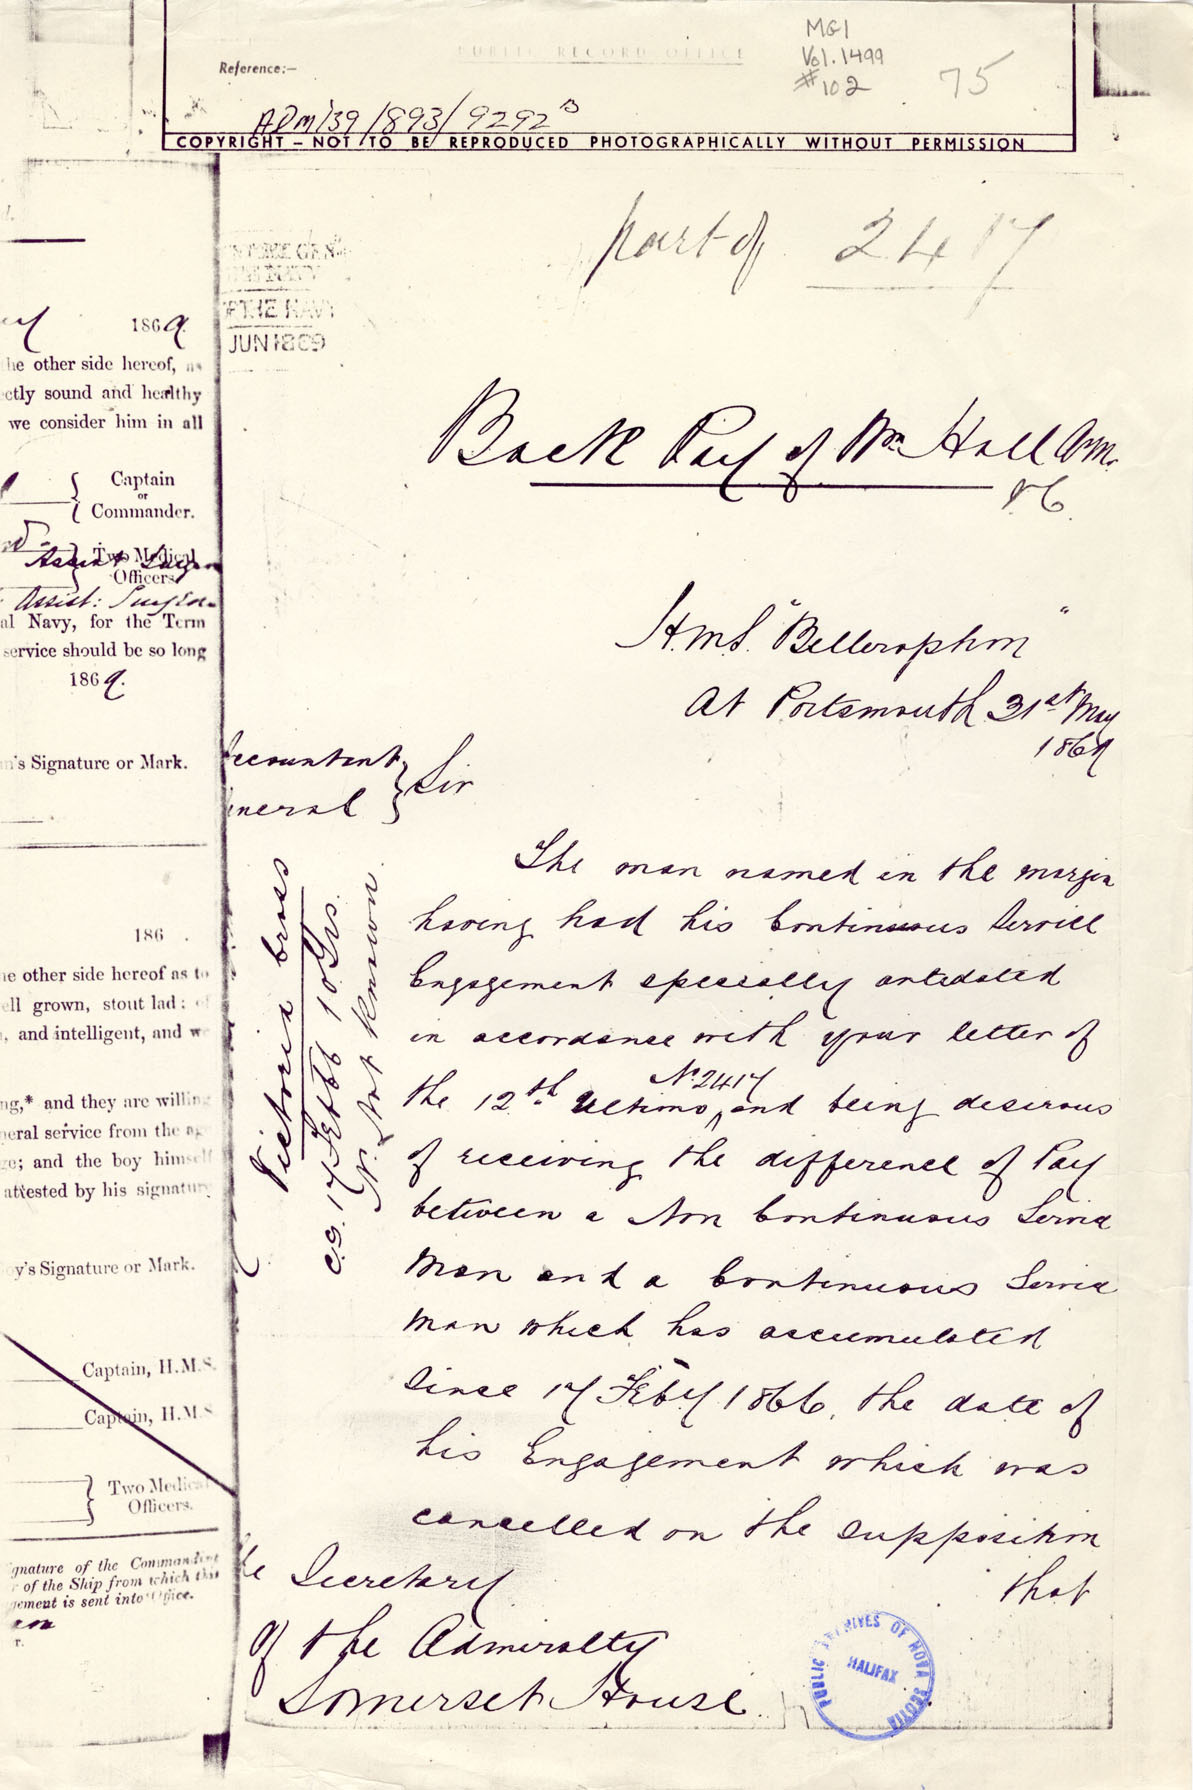 PUBLIC RECORD OFFICE
MG1
Vol. 1499
#102
75
Reference:—
ADM 139/893/9292 B
COPYRIGHT – NOT TO BE REPRODUCED PHOTOGRAPHICALLY WITHOUT PERMISSION
part of 2417
THE NAVY
JUN 1869
Back Pay of Wm Hall
&c
H.M.S. "Bellerophon"
At Portsmouth 31st May
1869
Accountant
General
Sir
The man named in the margin
having had his Continuous Service
Engagement specially antedated
in accordance with your letter of
the 12th Ultimo, No 2417 and being desirous
of receiving the difference of Pay
between a Non Continuous Service
Man and a Continuous Service
Man which has accumulated
since 17 Feby 1866, the date of
his Engagement which was
cancelled on the supposition
that
The Secretary
of the Admiralty
Somerset House
Victoria Cross
C.S. 17 Feb 66 10 Yrs.
No. Not Known.
1869.
the other side hereof, as
ctly sound and healthy
we consider him in all
Captain
or
Commander.
Two Medical
Officers
Assist: Surgeon
al Navy, for the Term
service should be so long
1869.
n's Signature or Mark.
186 .
he other side hereof as to
ell grown, stout lad; of
, and intelligent, and we
ng,* and they are willing
neral service from the age
ge; and the boy himself
attested by his signature
oy's Signature or Mark.
Captain, H.M.S.
Captain, H.M.S.
Two Medical
Officers.
ignature of the Commanding
r of the Ship from which this
gement is sent into Office.
r.
PUBLIC ARCHIVES OF NOVA SCOTIA
HALIFAX